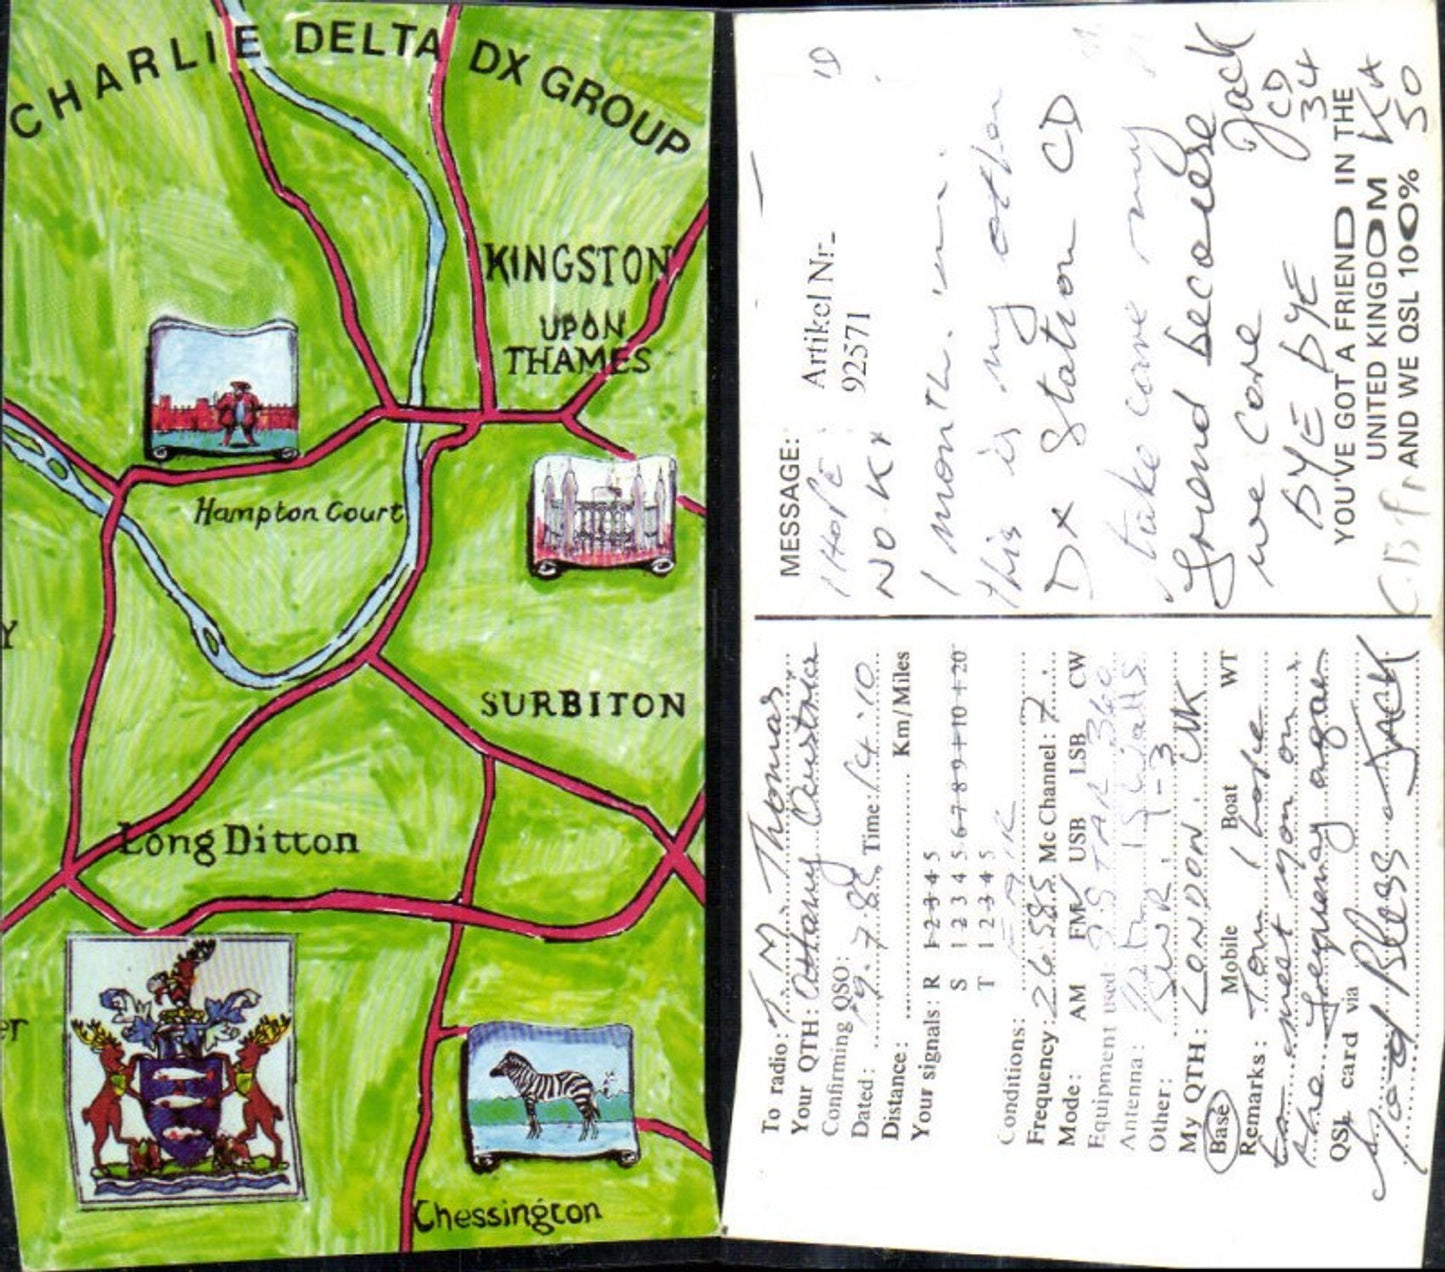 CHARLIE DELTA DX GROUP
KINGSTON
UPON
THAMES
Hampton Court
Y
SURBITON
Long Ditton
er
Chessington
To radio: T.M. Thomas
Your QTH: Austria
Confirming QSO:
Dated: 19.7.88 Time: 14.10
Distance: Km/Miles
Your signals: R 1 2 3 4 5
S 1 2 3 4 5 6 7 8 9 +10 +20
T 1 2 3 4 5
Conditions:
Frequency: 26585 Mc Channel: 7
Mode: AM FM USB LSB CW
Equipment used: STAR 360
Antenna:
Other: SWR. 1-3
My QTH: LONDON. UK
Base Mobile Boat WT
Remarks: Tom I hope
to meet you on
the frequency again
QSL card via
God Bless JACK
MESSAGE:
Artikel Nr.
92571
I HOPE
NO. K
I month.
this is my other
DX Station CD
take care my
friend because
we care Jack
BYE BYE CD
34
YOU'VE GOT A FRIEND IN THE
UNITED KINGDOM
AND WE QSL 100% 50